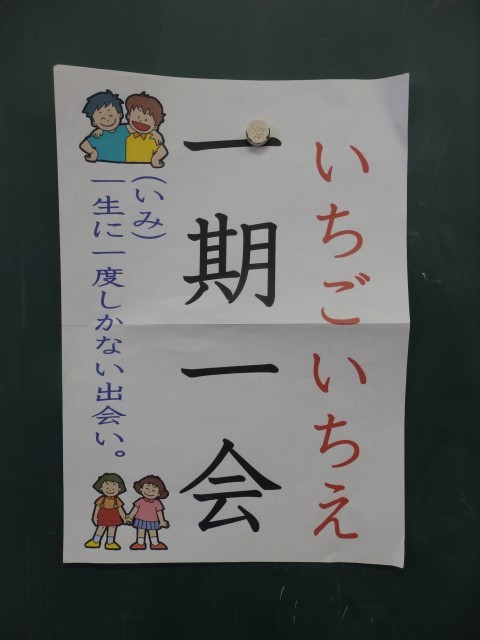 いちごいちえ
一期一会
（いみ）
一生に一度しかない出会い。